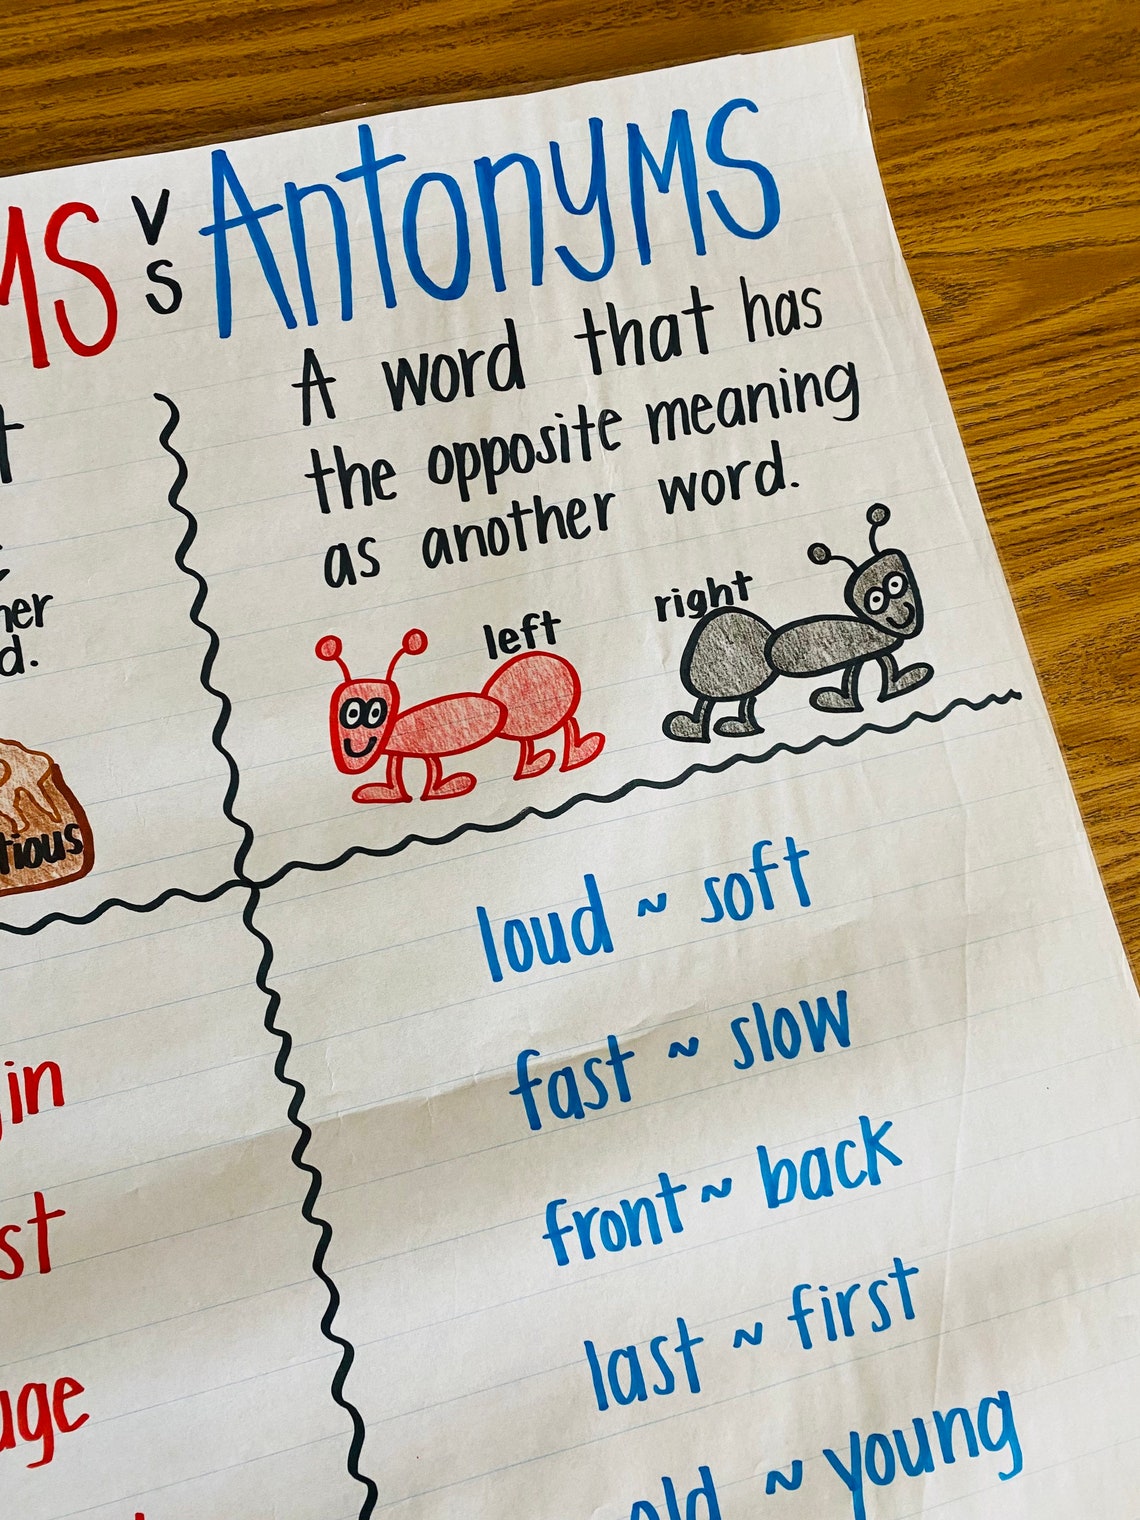 MS vs Antonyms
A word that has
the opposite meaning
as another word.
left
right
loud ~ soft
fast ~ slow
front ~ back
last ~ first
old ~ young
her
d.
tious
gin
st
uge